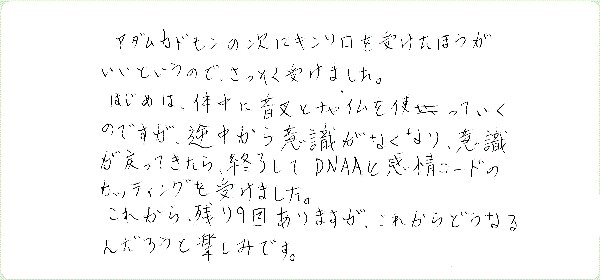 アダムカドモンの次にキンロロを受けたほうが
いいというので、さっそく受けました。
はじめは、体中に音叉とチャイムを使っていく
のですが、途中から意識がなくなり、意識
が戻ってきたら、終了して DNAAと感情コードの
セッティングを受けました。
これから、残り9回ありますが、これからどうなる
んだろうと楽しみです。